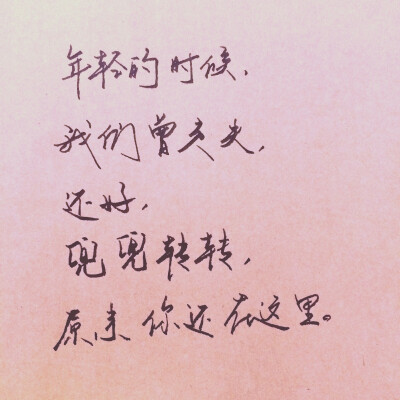 年轻的时候，
我们曾走失，
还好，
兜兜转转，
原来你还在这里。